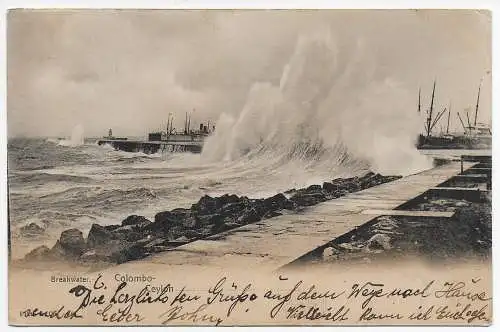 Breakwater. Colombo-
Ceylon
Die herzlichsten Grüße auf dem Wege nach Hause
sendet Euer Sohn
Vielleicht kann ich Euch